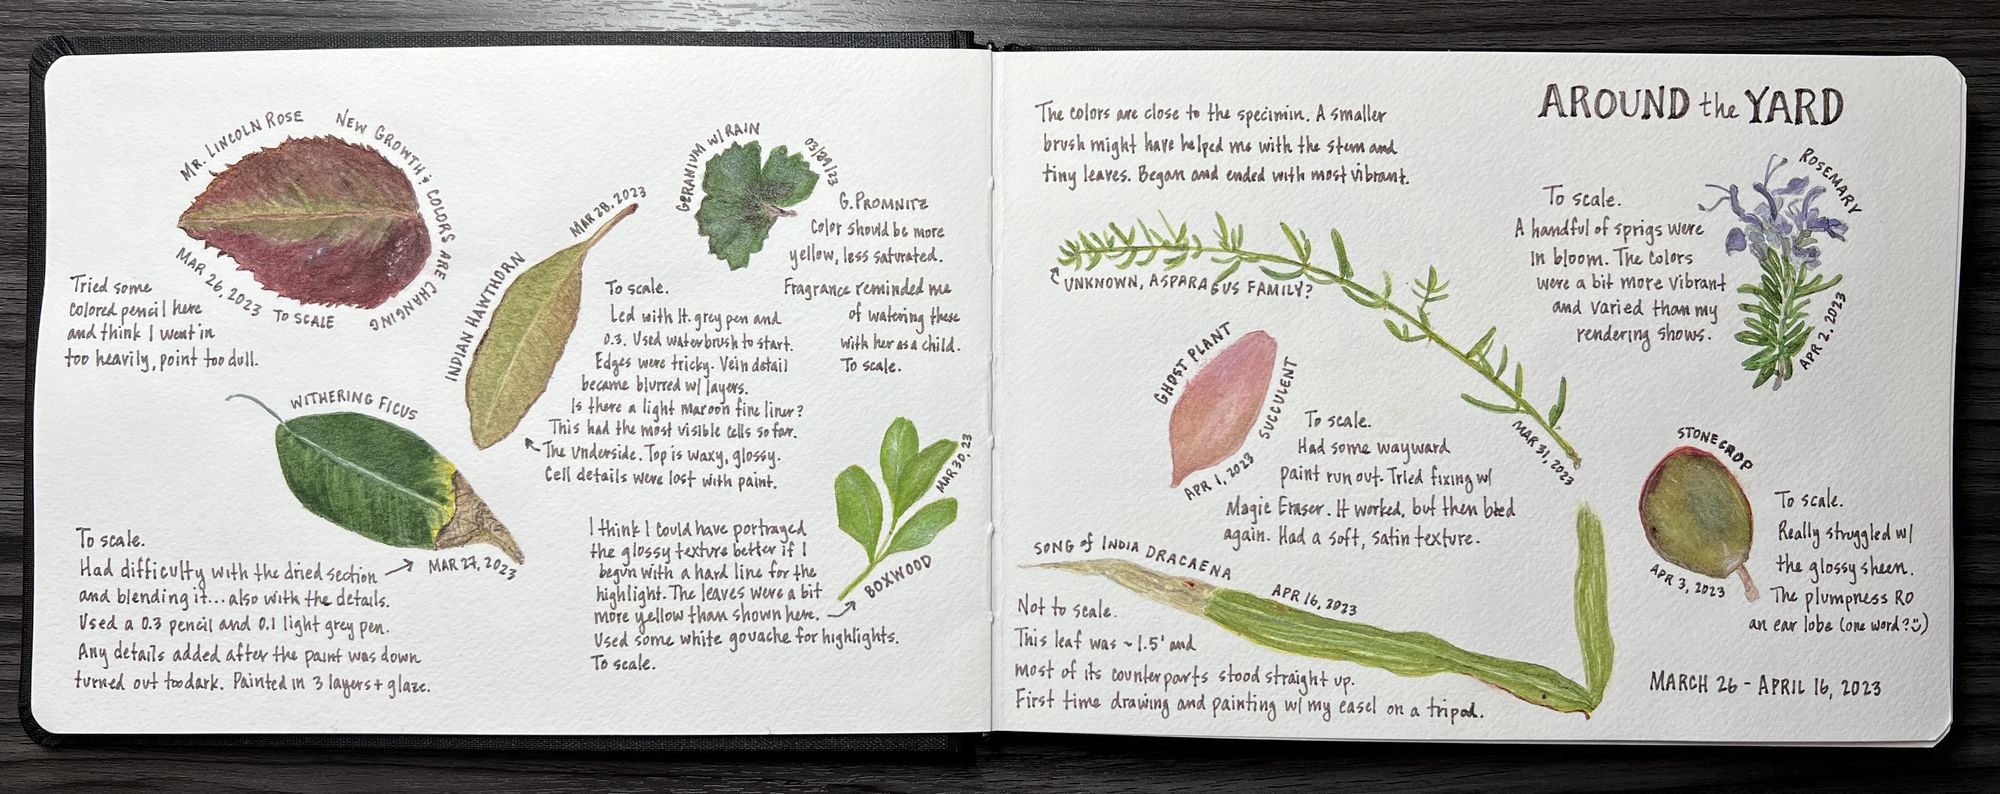 MR. LINCOLN ROSE
NEW GROWTH & COLORS ARE CHANGING
MAR 26, 2023
TO SCALE
Tried some
colored pencil here
and think I went in
too heavily, point too dull.
INDIAN HAWTHORN
MAR 28, 2023
To scale.
Led with lt. grey pen and
0.3. Used waterbrush to start.
Edges were tricky. Vein detail
became blurred w/ layers.
Is there a light maroon fine liner?
This had the most visible cells so far.
The underside. Top is waxy, glossy.
Cell details were lost with paint.
GERANIUM W/ RAIN
03/29/23
G. PROMNITZ
Color should be more
yellow, less saturated.
Fragrance reminded me
of watering these
with her as a child.
To scale.
WITHERING FICUS
MAR 27, 2023
To scale.
Had difficulty with the dried section
and blending it... also with the details.
Used a 0.3 pencil and 0.1 light grey pen.
Any details added after the paint was down
turned out too dark. Painted in 3 layers + glaze.
BOXWOOD
MAR 30, 23
I think I could have portrayed
the glossy texture better if I
begun with a hard line for the
highlight. The leaves were a bit
more yellow than shown here.
Used some white gouache for highlights.
To scale.
AROUND the YARD
The colors are close to the specimin. A smaller
brush might have helped me with the stem and
tiny leaves. Began and ended with most vibrant.
UNKNOWN, ASPARAGUS FAMILY?
MAR 31, 2023
ROSEMARY
APR 2, 2023
To scale.
A handful of sprigs were
in bloom. The colors
were a bit more vibrant
and varied than my
rendering shows.
GHOST PLANT
SUCCULENT
APR 1, 2023
To scale.
Had some wayward
paint run out. Tried fixing w/
Magic Eraser. It worked, but then bled
again. Had a soft, satin texture.
STONECROP
APR 3, 2023
To scale.
Really struggled w/
the glossy sheen.
The plumpness RO
an ear lobe (one word? :)
SONG of INDIA DRACAENA
APR 16, 2023
Not to scale.
This leaf was ~1.5' and
most of its counterparts stood straight up.
First time drawing and painting w/ my easel on a tripod.
MARCH 26 - APRIL 16, 2023